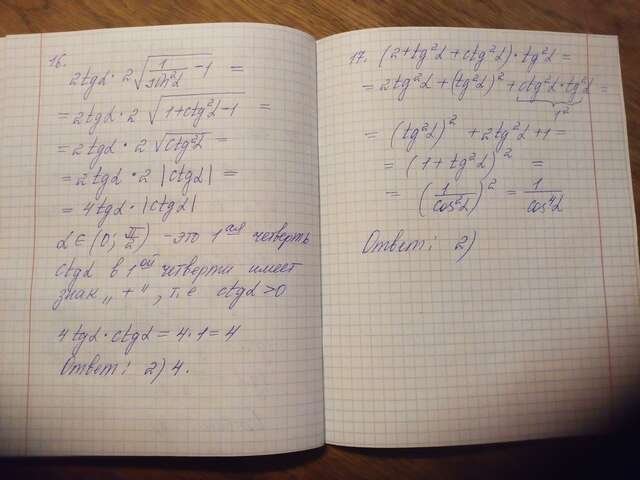 16.
2tgα · 2√(1/sin²α − 1) =
= 2tgα · 2√(1+ctg²α−1) =
= 2tgα · 2√(ctg²α) =
= 2tgα · 2|ctgα| =
= 4tgα · |ctgα|
α ∈ (0; π/2) − это 1ая четверть
ctgα в 1ой четверти имеет
знак „+“, т.е ctgα > 0
4tgα · ctgα = 4·1 = 4
Ответ: 2) 4.
17. (2+tg²α+ctg²α)·tg²α =
= 2tg²α + (tg²α)² + ctg²α·tg²α =
1²
= (tg²α)² + 2tg²α + 1 =
= (1+tg²α)² =
= (1/cos²α)² = 1/cos⁴α
Ответ: 2)